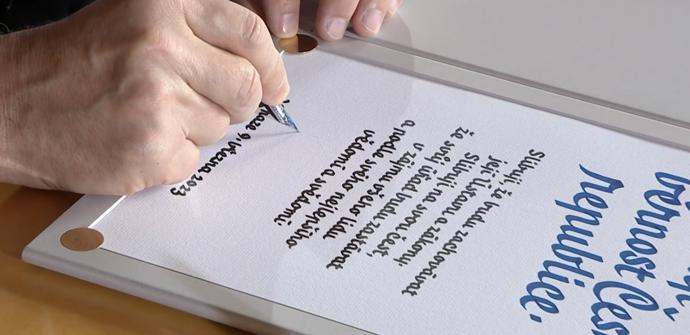 věrnost Čes
republice.
Slibuji, že budu zachovávat
její Ústavu a zákony.
Slibuji na svou čest,
že svůj úřad budu zastávat
v zájmu všeho lidu
a podle svého nejlepšího
vědomí a svědomí.
raze 9. března 2023